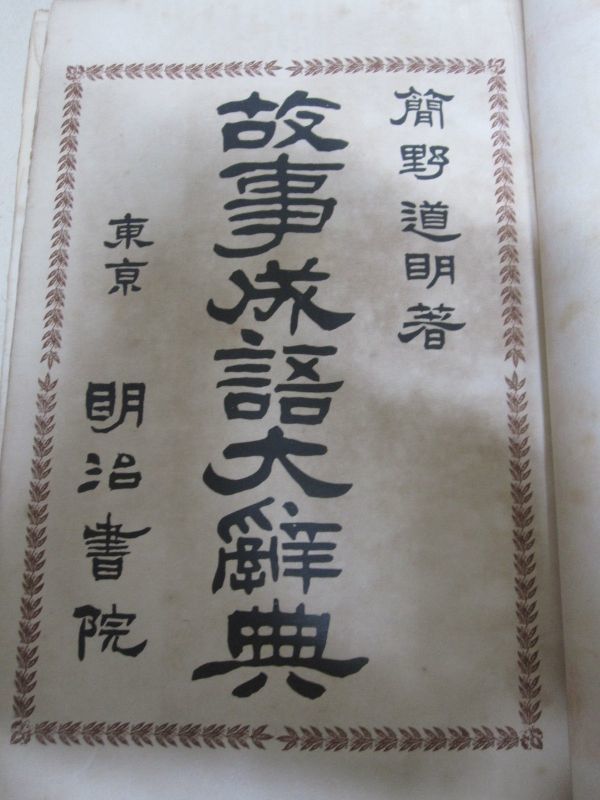 簡野道明著
故事成語大辭典
東京 明治書院